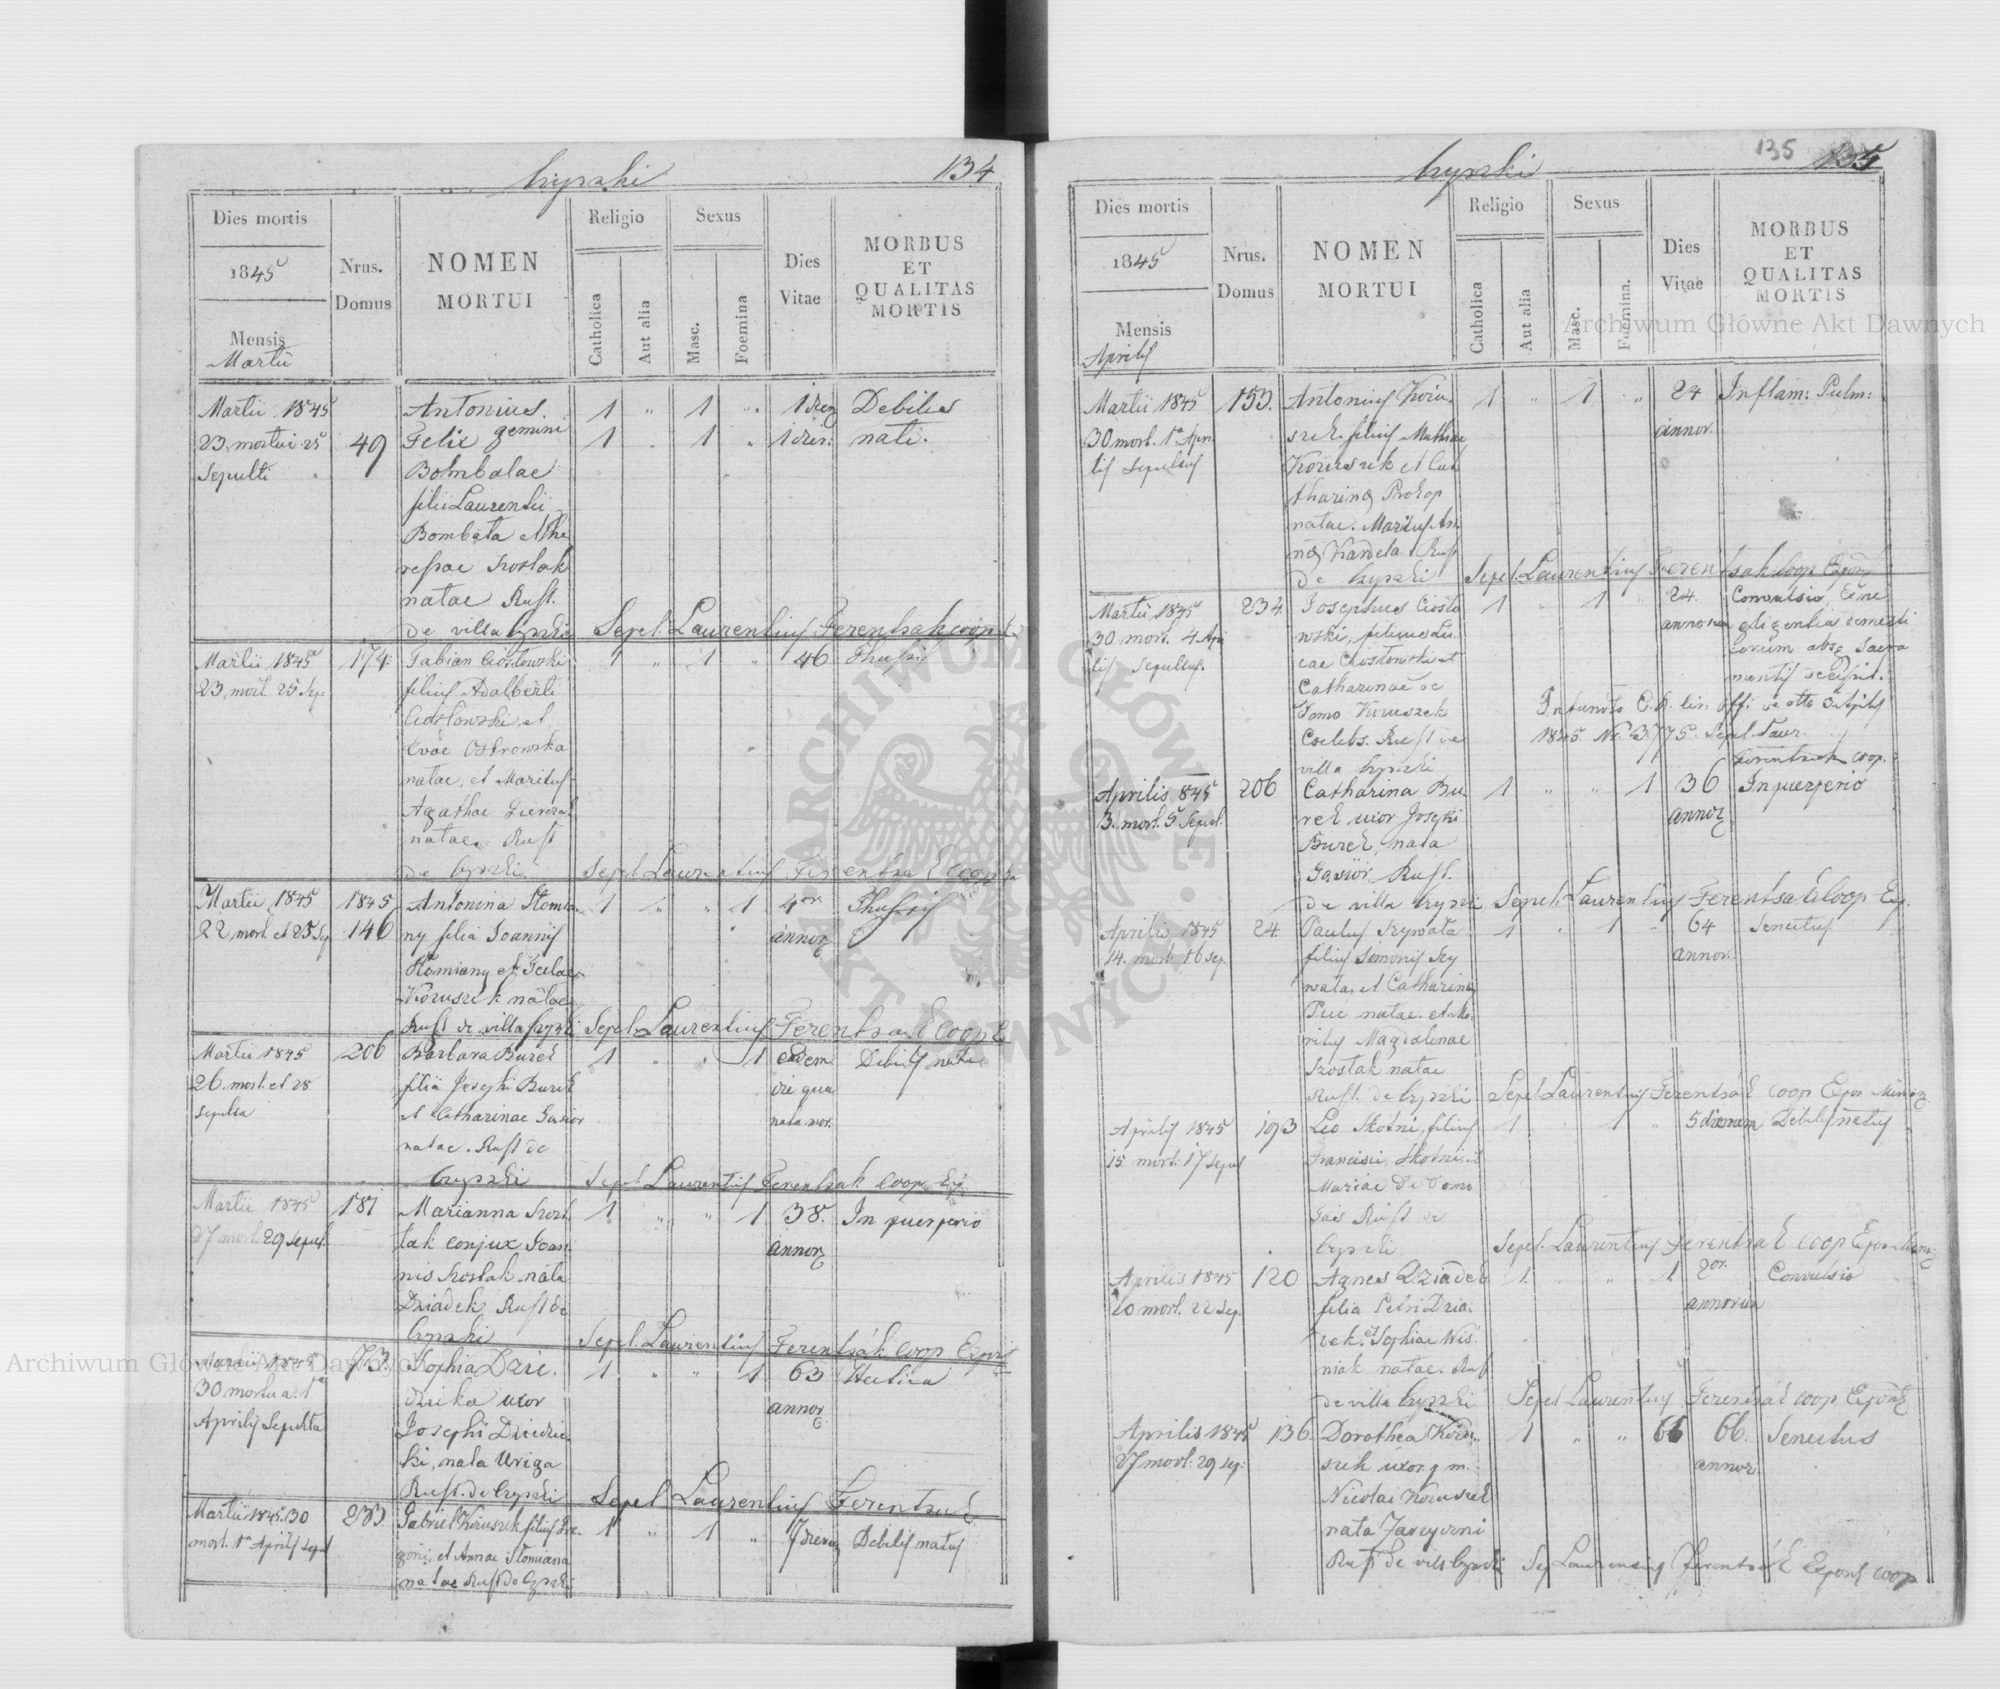 134
Dies mortis
1845
Mensis
Martii
Nrus.
Domus
NOMEN
MORTUI
Religio
Catholica
Aut alia
Sexus
Masc.
Foemina
Dies
Vitae
MORBUS
ET
QUALITAS
MORTIS
Martii 1845
23 mortui 25
Sepulti
49
Antonius
Felix gemini
Bombalae
filii Laurentii
Bombala et The
resiae Szostak
natae Rust.
de villa
1 " 1 "
1 " 1 "
1 diei
1 diei
Debiles
nati.
Sepel. Laurentius Ferentsak coop
Martii 1845
23 mort. 25 Sep.
174
Fabian Ciosłowski
filius Adalberti
Ciosłowski et
Evae Ostrowska
natae, et Maritus
Agathae
natae. Rust
de
1 " 1 "
46
Sepel. Laurentius Ferentsak coop
Martii 1845
22 mort. et 25 Sep
1845
146
Antonina Słomia
ny filia Joannis
Słomiany et
Koruszek natae
Rust de villa
1 " " 1
4or
annor.
Sepel. Laurentius Ferentsak coop
Martii 1845
26 mort. et 28
sepulta
206
Barbara Burek
filia Josephi Burek
et Catharinae Gasior
natae. Rust de
1 " " 1
eadem
die qua
nata mor.
Debilis nata
Sepel. Laurentius Ferentsak coop Ex.
Martii 1845
27 mort. 29 sepul.
181
Marianna Szos
tak conjux Joan
nis Szostak nata
Dziadek Rust de
1 " " 1
38.
annor.
In puerperio
Sepel. Laurentius Ferentsák coop Expos
Martii 1845
30 mortua. 1a
Aprilis Sepulta
73.
Sophia Dzie.
dzicka uxor
Josephi Dziedzic
ki, nata Uryga
Rust. de
1 " " 1
63
annor.
Hectica
Sepel. Laurentius Ferentsak
Martii 1845. 30
mort. 1a Aprilis Sepul
233.
Gabriel Koruszek filius Gre.
gorii, et Annae Słomiana
natae Rust de
1 " 1 "
7 dierum
Debilis natus
135
135
Dies mortis
1845
Mensis
Aprilis
Nrus.
Domus
NOMEN
MORTUI
Religio
Catholica
Aut alia
Sexus
Masc.
Foemina.
Dies
Vitae
MORBUS
ET
QUALITAS
MORTIS
Martii 1845
30 mort. 1a Apri.
lis Sepultus
153.
Antonius Koru.
szek filius Mathiae
Koruszek et Cat
tharinae Prokop
natae. Maritus An
nae Kardela. Rust
de
1 " 1 "
24
annor.
Inflam: Pulm:
Sepel. Laurentius Ferentsak coop Expos
Martii 1845
30 mort. 4 Apri
lis sepultus.
234.
Josephus Ciosło
wski, filius Lu
cae Ciosłowski et
Catharinae de
Domo Koruszek
Coelebs. Rust de
villa
1 " 1 "
24.
annorum
Convulsio
negligentia domesti
corum absq Sacra
mentis decessit.
1845 Nr. 3775. Sepel. Laur.
Ferentsak coop.
Aprilis 845
3. mort. 5 Sepul.
206
Catharina Bu
rek uxor Josephi
Burek, nata
Gasior, Rust.
de villa
1 " " 1
36
annor.
In puerperio
Sepel. Laurentius Ferentsak coop Ex.
Aprilis 1845
14. mort. 16 Sep.
24.
Paulus Szywała
filius Simonis Szy
wała, et Catharinae
natae. et Ma
ritus Magdalenae
Szostak natae
Rust. de
1 " 1 "
64
annor.
Senectus
Sepel. Laurentius Ferentsák coop Expos
Aprilis 1845
15 mort. 17 Sepul
193
Leo Skotni, filius
Francisci Skotni et
Mariae de Domo
Rust de
1 " 1 "
5 dierum
Debilis natus
Sepel. Laurentius Ferentsak coop
Aprilis 1845
20 mort. 22 Sep.
120
Agnes Dziadek
filia Petri Dzia.
dek et Sophiae Wiś
niak natae. Rust
de villa
1 " " 1
2or.
annorum
Convulsio
Sepel Laurentius Ferentsák coop
Aprilis 1845
27 mort. 29 Sep.
136
Dorothea Koru.
szek uxor q m.
Nicolai Koruszek
nata
Rust de
1 " " 66 66.
annor.
Senectus
Sep Laurentius Ferentsák Expos coop
Archiwum Główne Akt Dawnych
Archiwum Główne Akt Dawnych
ARCHIWUM GŁÓWNE AKT DAWNYCH